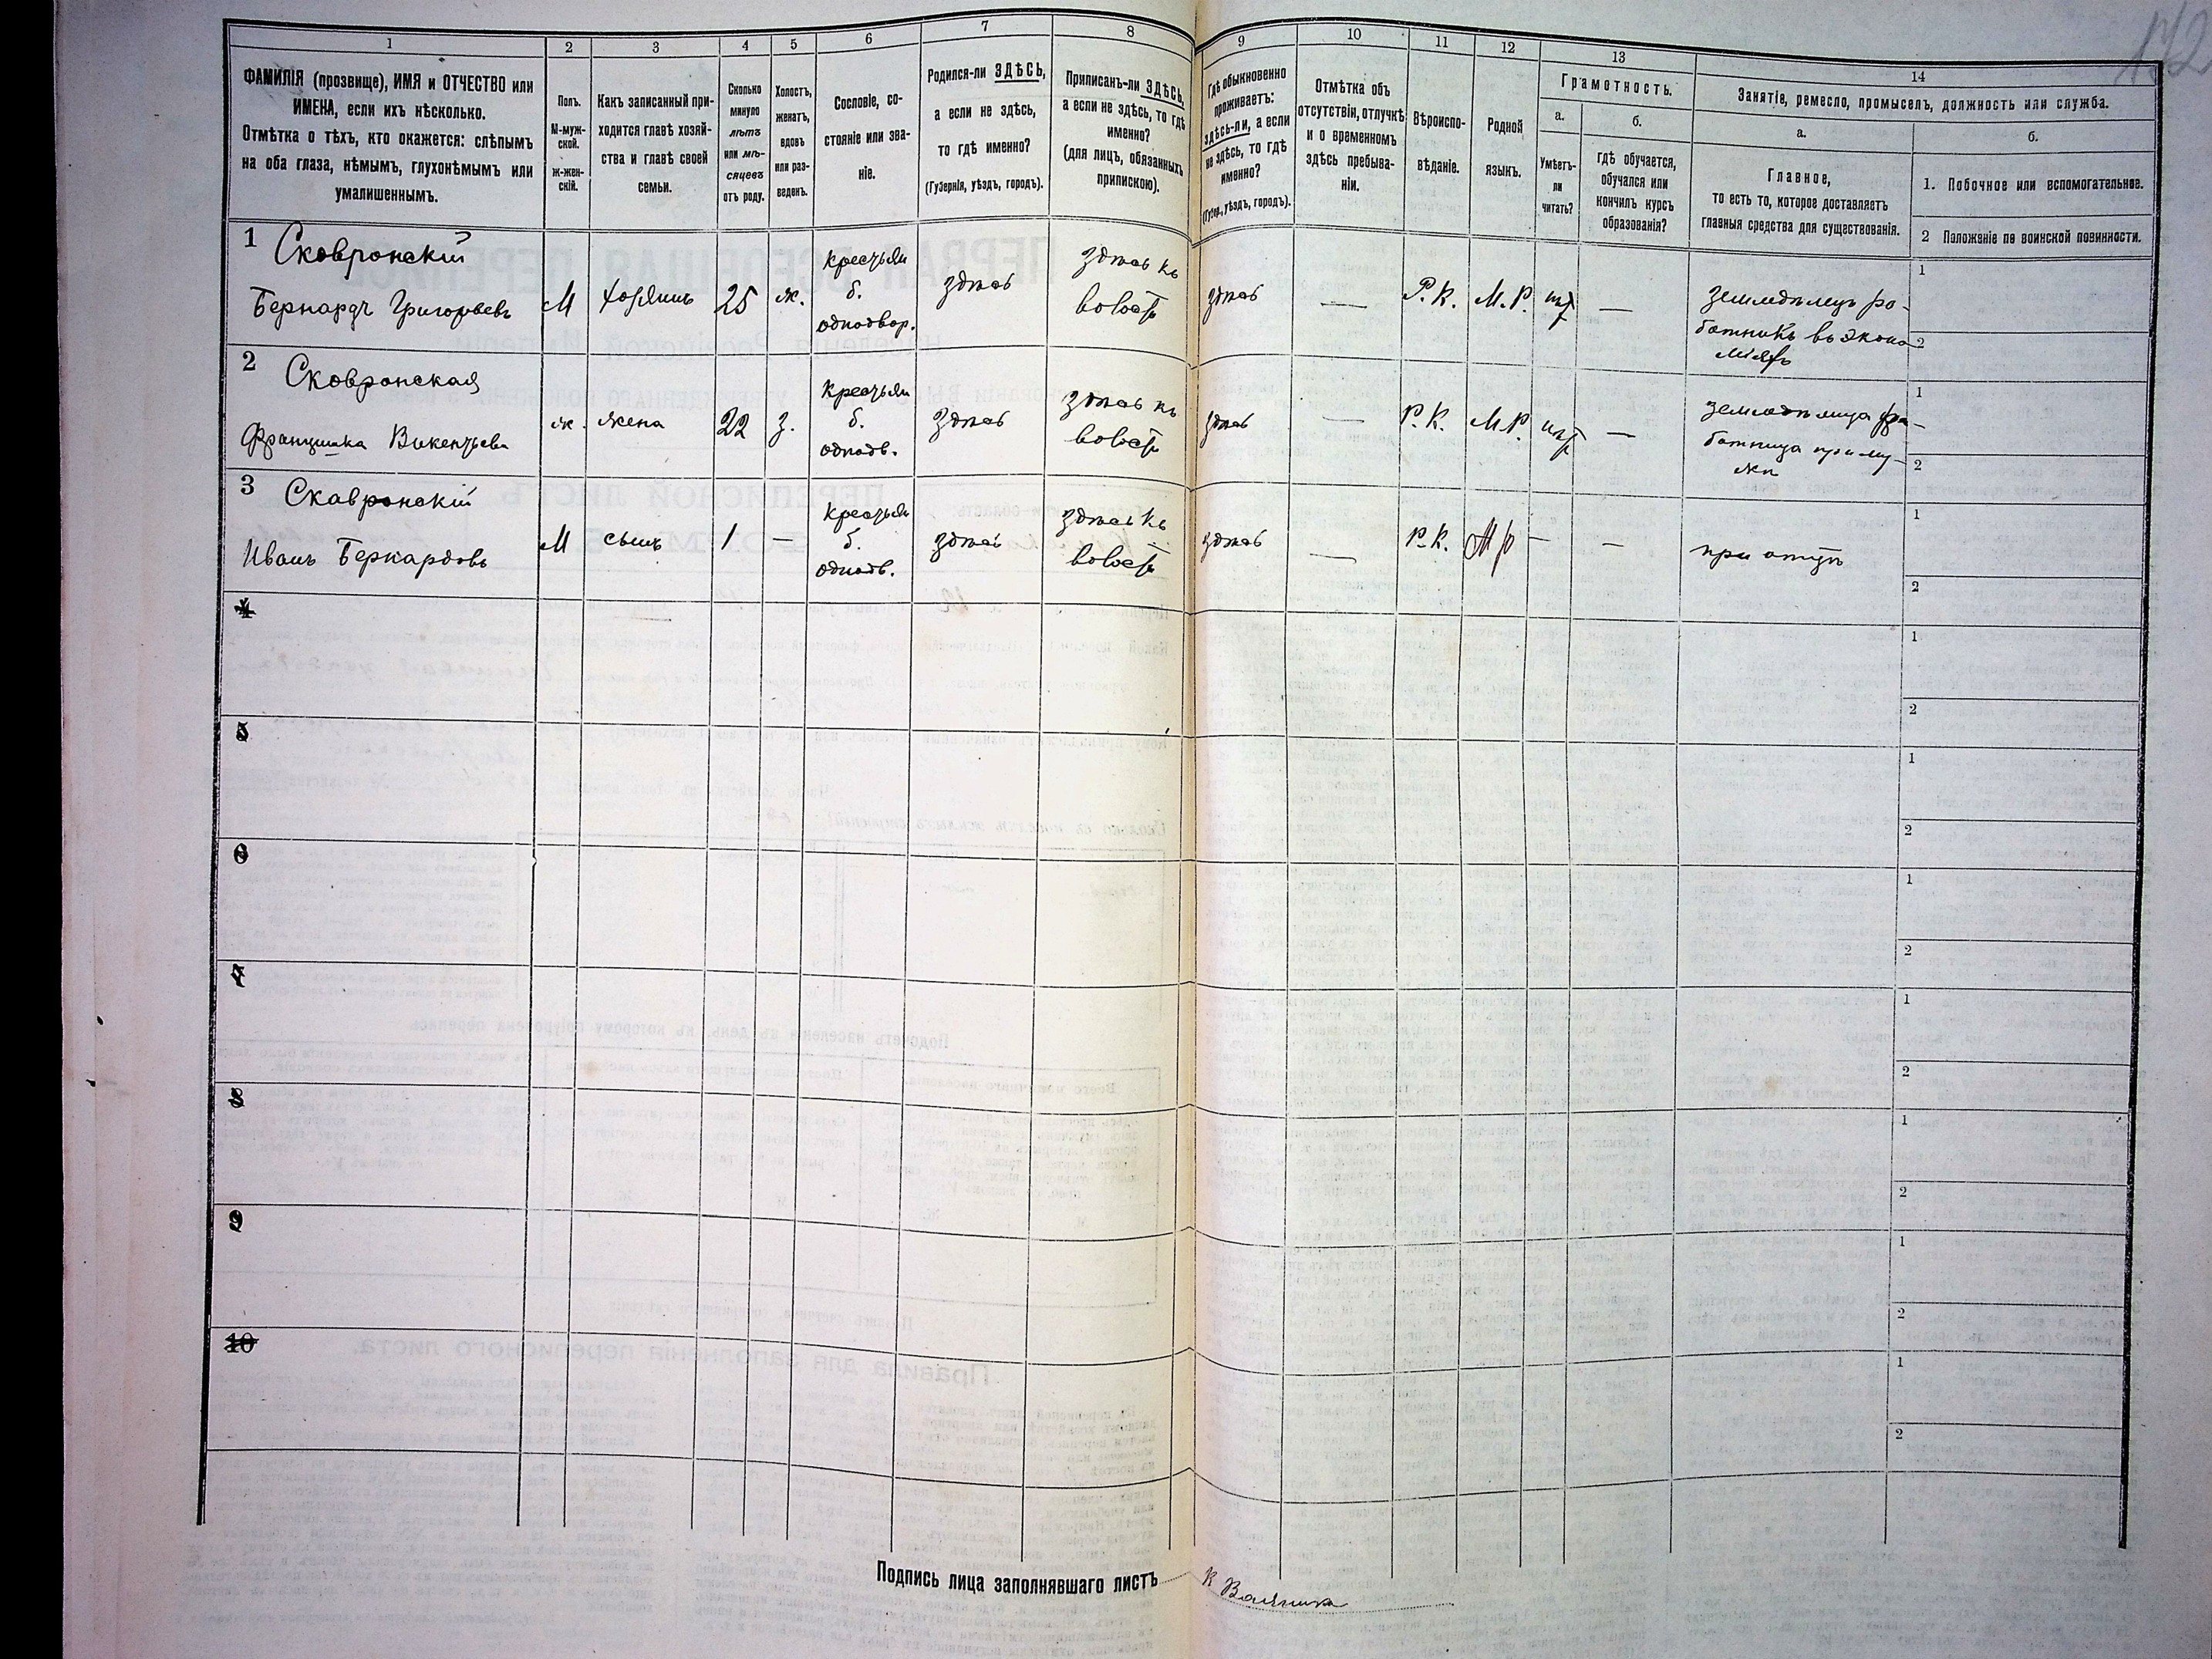 172
1
2
3
4
5
6
7
8
9
10
11
12
13
14
ФАМИЛІЯ (прозвище), ИМЯ и ОТЧЕСТВО или
ИМЕНА, если ихъ нѣсколько.
Отмѣтка о тѣхъ, кто окажется: слѣпымъ
на оба глаза, нѣмымъ, глухонѣмымъ или
умалишеннымъ.
Полъ.
М-муж-
ской.
ж-жен-
скій.
Какъ записанный при-
ходится главѣ хозяй-
ства и главѣ своей
семьи.
Сколько
минуло
лѣтъ
или мѣ-
сяцевъ
отъ роду.
Холостъ,
женатъ,
вдовъ
или раз-
веденъ.
Сословіе, со-
стояніе или зва-
ніе.
Родился-ли ЗДѢСЬ,
а если не здѣсь,
то гдѣ именно?
(Губернія, уѣздъ, городъ).
Приписанъ-ли ЗДѢСЬ,
а если не здѣсь, то гдѣ
именно?
(для лицъ, обязанныхъ
припискою).
Гдѣ обыкновенно
проживаетъ:
здѣсь-ли, а если
не здѣсь, то гдѣ
именно?
(Губер., уѣздъ, городъ).
Отмѣтка объ
отсутствіи, отлучкѣ
и о временномъ
здѣсь пребыва-
ніи.
Вѣроиспо-
вѣданіе.
Родной
языкъ.
Грамотность.
а.
Умѣетъ-
ли
читать?
б.
Гдѣ обучается,
обучался или
кончилъ курсъ
образованія?
Занятіе, ремесло, промыселъ, должность или служба.
а.
Главное,
то есть то, которое доставляетъ
главныя средства для существованія.
б.
1. Побочное или вспомогательное.
2 Положеніе по воинской повинности.
1 Сковронскій
Бернардъ Григорьевъ
М
хозяинъ
25
ж.
крестьян
б.
однодвор.
здѣсь
здѣсь къ
волости
здѣсь
—
Р.К.
М.Р.
нѣт
—
земледѣлецъ ра-
ботникъ въ эконо
міяхъ
1
2
2 Сковронская
Францишка Викентьева
ж.
жена
22
з.
Крестьян
б.
однодв.
здѣсь
здѣсь къ
волости
здѣсь
—
Р.К.
М.Р.
нѣт
—
земледѣлица ра-
ботница при му-
жѣ
1
2
3 Скавронскій
Иванъ Бернардовъ
М
сынъ
1
—
крестьян
б.
однодв.
здѣсь
здѣсь къ
волости
здѣсь
—
Р.К.
Мр
—
—
при отцѣ
1
2
4
1
2
5
1
2
6
1
2
7
1
2
8
1
2
9
1
2
10
1
2
Подпись лица заполнявшаго листъ